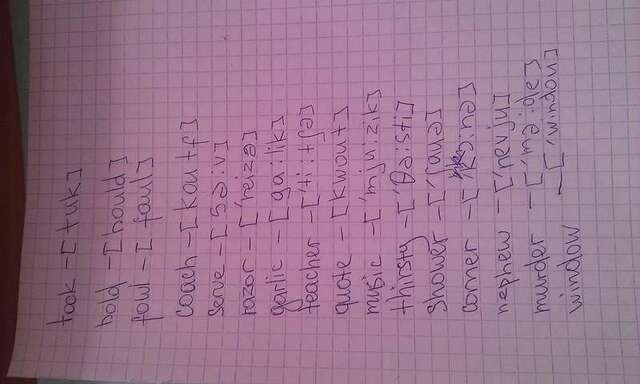 took - [tuk]
bold - [bould]
foul - [faul]
coach - [koutʃ]
serve - [sə:v]
razor - ['reizə]
garlic - [ga:lik]
teacher - [ti:tʃə]
quote - [kwout]
music - ['mju:zik]
thirsty - ['θə:sti]
shower - ['ʃauə]
corner - ['kɔ:nə]
nephew - ['nevju]
murder - ['mə:də]
window - ['windou]